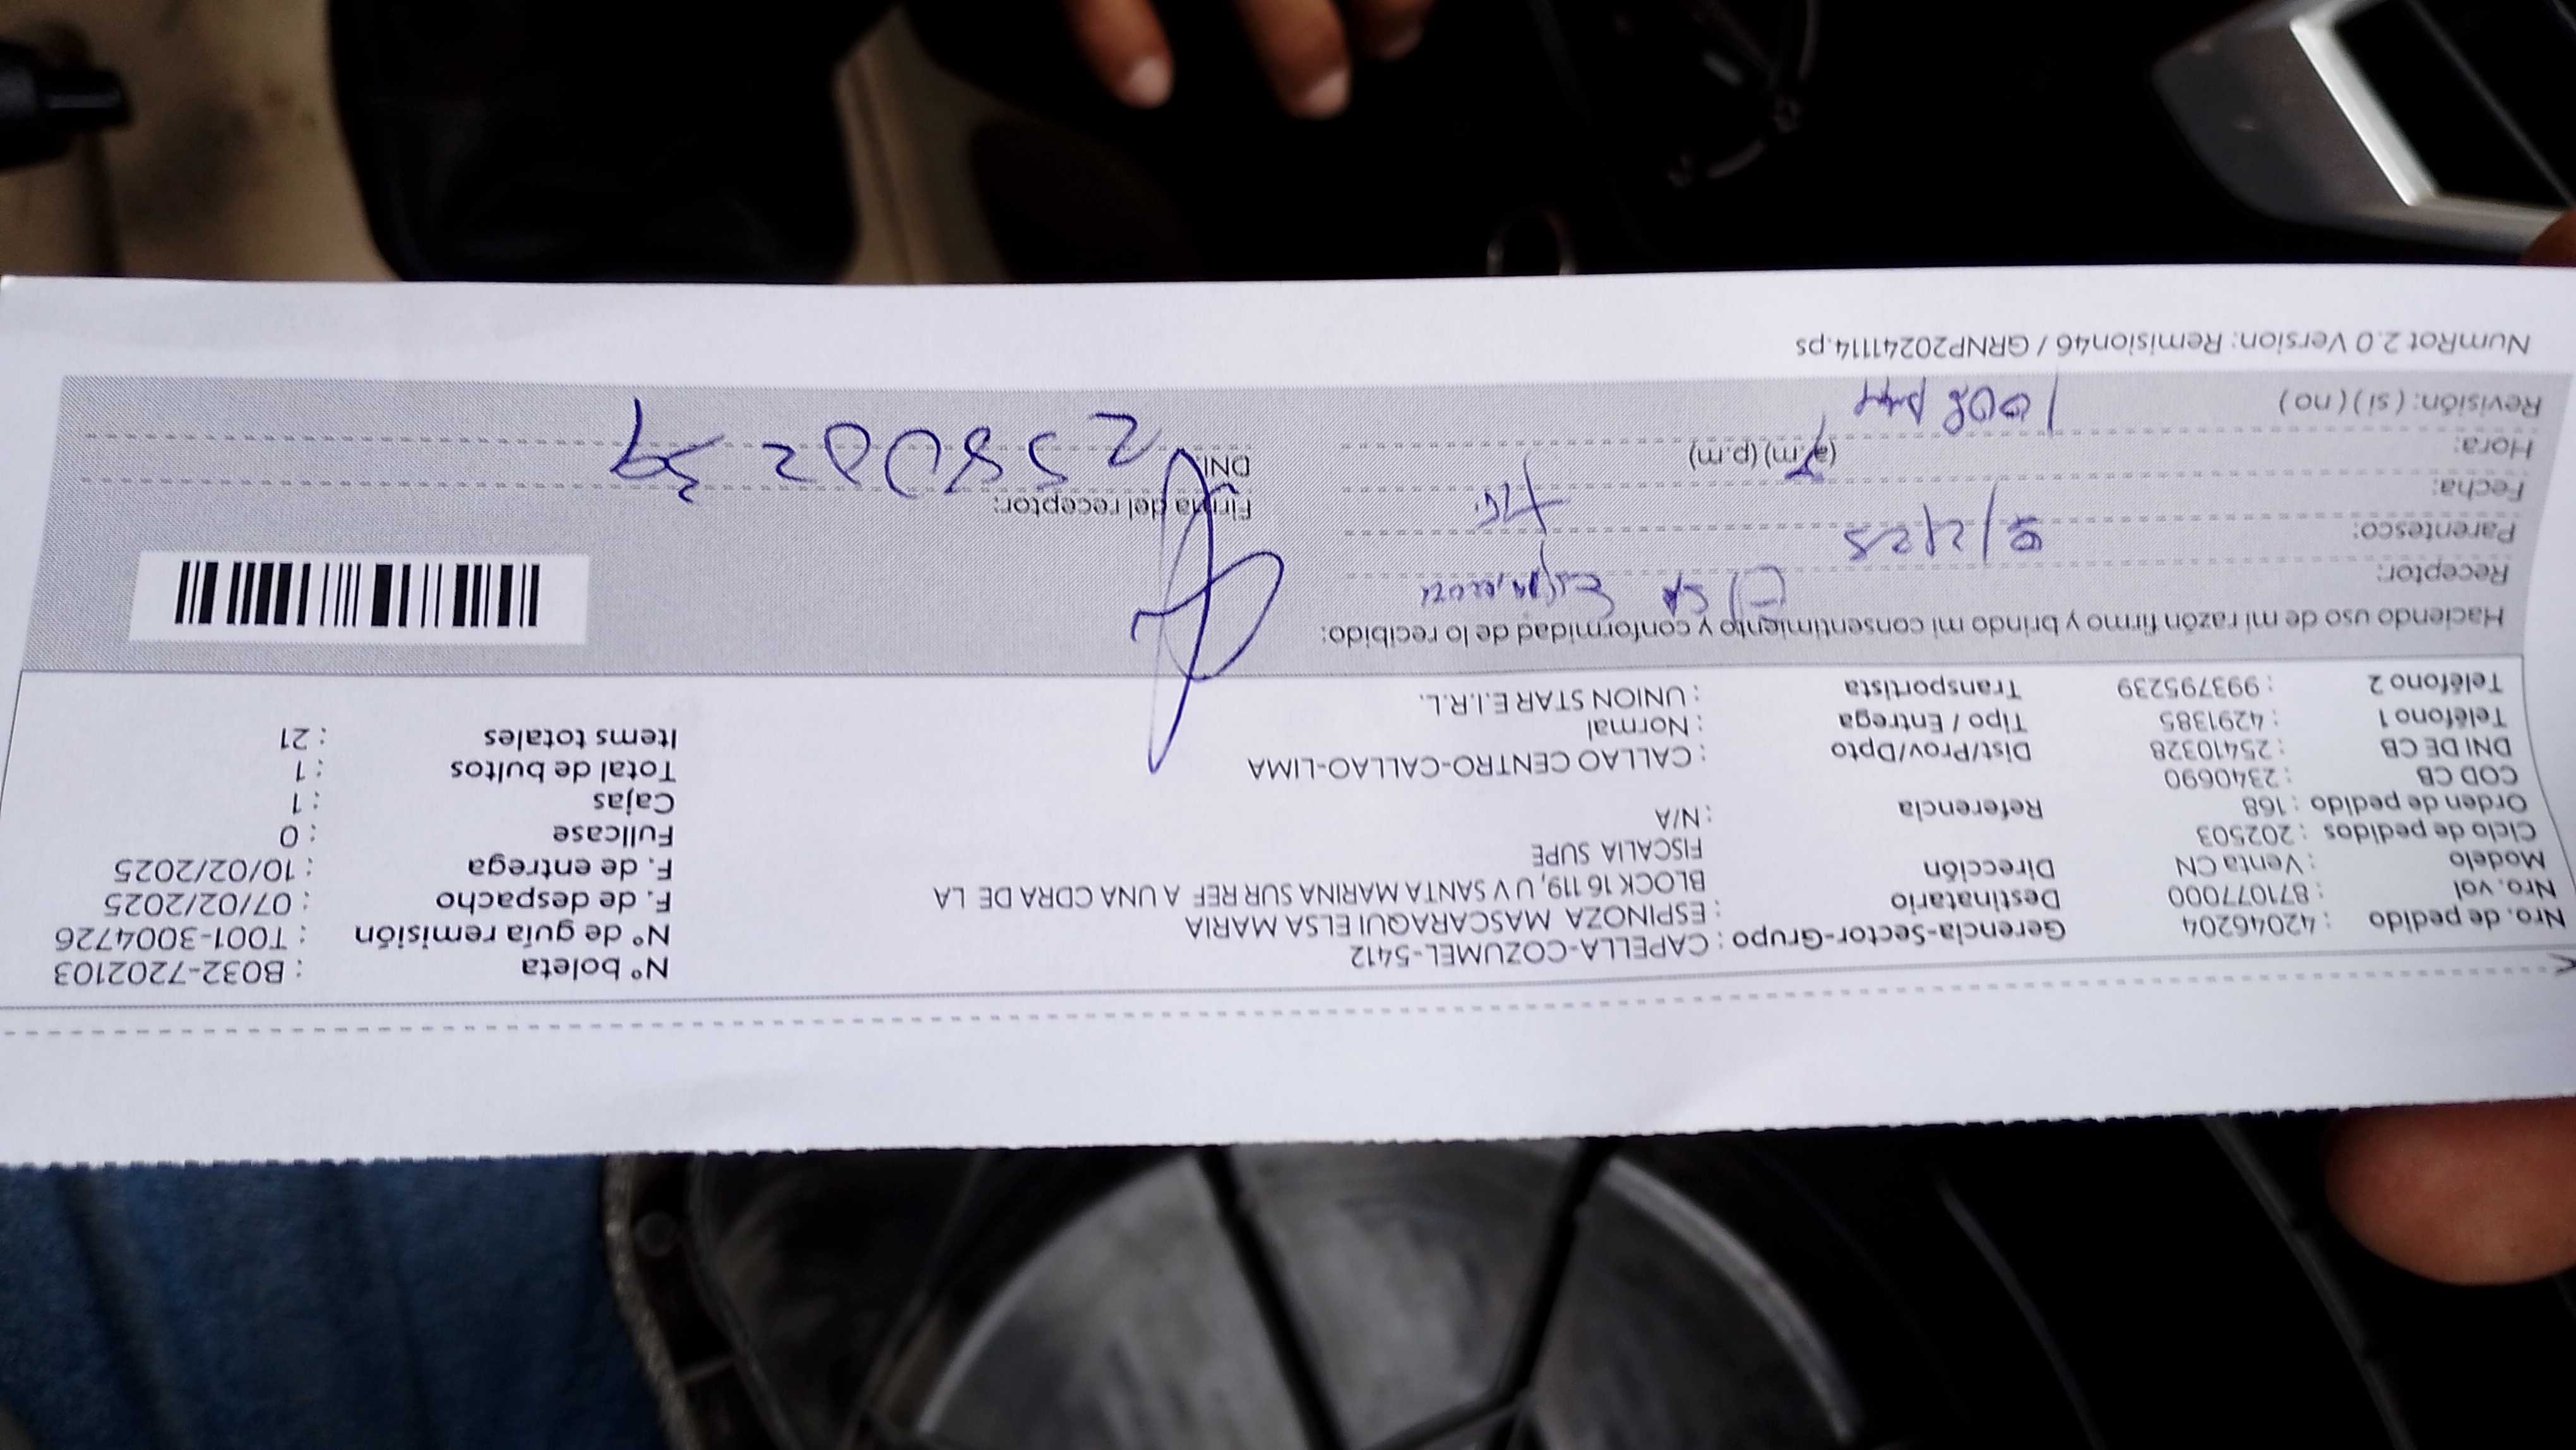 Nro. de pedido : 42046204 Gerencia-Sector-Grupo : CAPELLA-COZUMEL-5412 Nº boleta : B032-7202103
Nro. vol : 871077000 Destinatario : ESPINOZA MASCARAQUI ELSA MARIA Nº de guía remisión : T001-3004726
Modelo : Venta CN Dirección BLOCK 16 119, U V SANTA MARINA SUR REF A UNA CDRA DE LA F. de despacho : 07/02/2025
Ciclo de pedidos : 202503 FISCALIA SUPE F. de entrega : 10/02/2025
Orden de pedido : 168 Referencia : N/A Fullcase : 0
COD CB : 2340690 Cajas : 1
DNI DE CB : 25410328 Dist/Prov/Dpto : CALLAO CENTRO-CALLAO-LIMA Total de bultos : 1
Teléfono 1 : 4291385 Tipo / Entrega : Normal Items totales : 21
Teléfono 2 : 993795239 Transportista : UNION STAR E.I.R.L.
Haciendo uso de mi razón firmo y brindo mi consentimiento y conformidad de lo recibido:
Receptor: Elsa Espinoza
Parentesco:
Fecha: /2/25 Firma del receptor:
Hora: (a.m) (p.m) DNI:
Revisión: ( si ) ( no )
NumRot 2.0 Version: Remision46 / GRNP20241114.ps